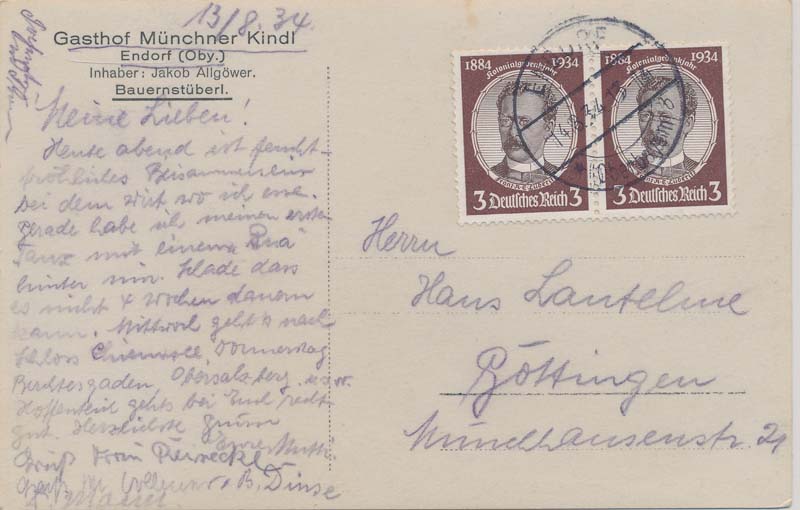 13/8. 34.
Gasthof Münchner Kindl
Endorf (Oby.)
Inhaber: Jakob Allgöwer.
Bauernstüberl.
Meine Lieben!
Heute abend ist feucht-
fröhliches Beisammensein
bei dem Wirt wo ich esse.
Gerade habe ich meinen ersten
Tanz mit einem
hinter mir. Schade dass
es nicht 4 Wochen dauern
kann. Mittwoch geht's nach
Schloss Chiemsee, Donnerstag
Berchtesgaden, Obersalzberg u.s.w.
Hoffentlich gehts bei Euch recht
gut. Herzlichste Grüsse
Eure Mutti.
Gruß Frau
B. Dinse
1884 1934
Kolonialgedenkjahr
3 Deutsches Reich 3
1884 1934
Kolonialgedenkjahr
3 Deutsches Reich 3
14.8.34
Herrn
Hans Lantelme
Göttingen
Münchhausenstr. 21